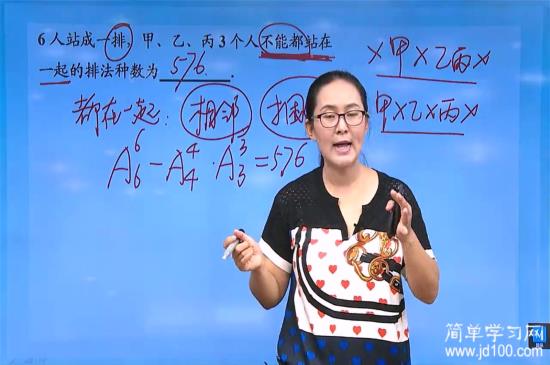 6人站成一排，甲、乙、丙3个人不能都站在
一起的排法种数为 576 .
都在一起: 相邻 捆
×甲×乙丙×
甲×乙×丙×
A⁶₆ - A⁴₄ · A³₃ = 576
简单学习网
www.jd100.com